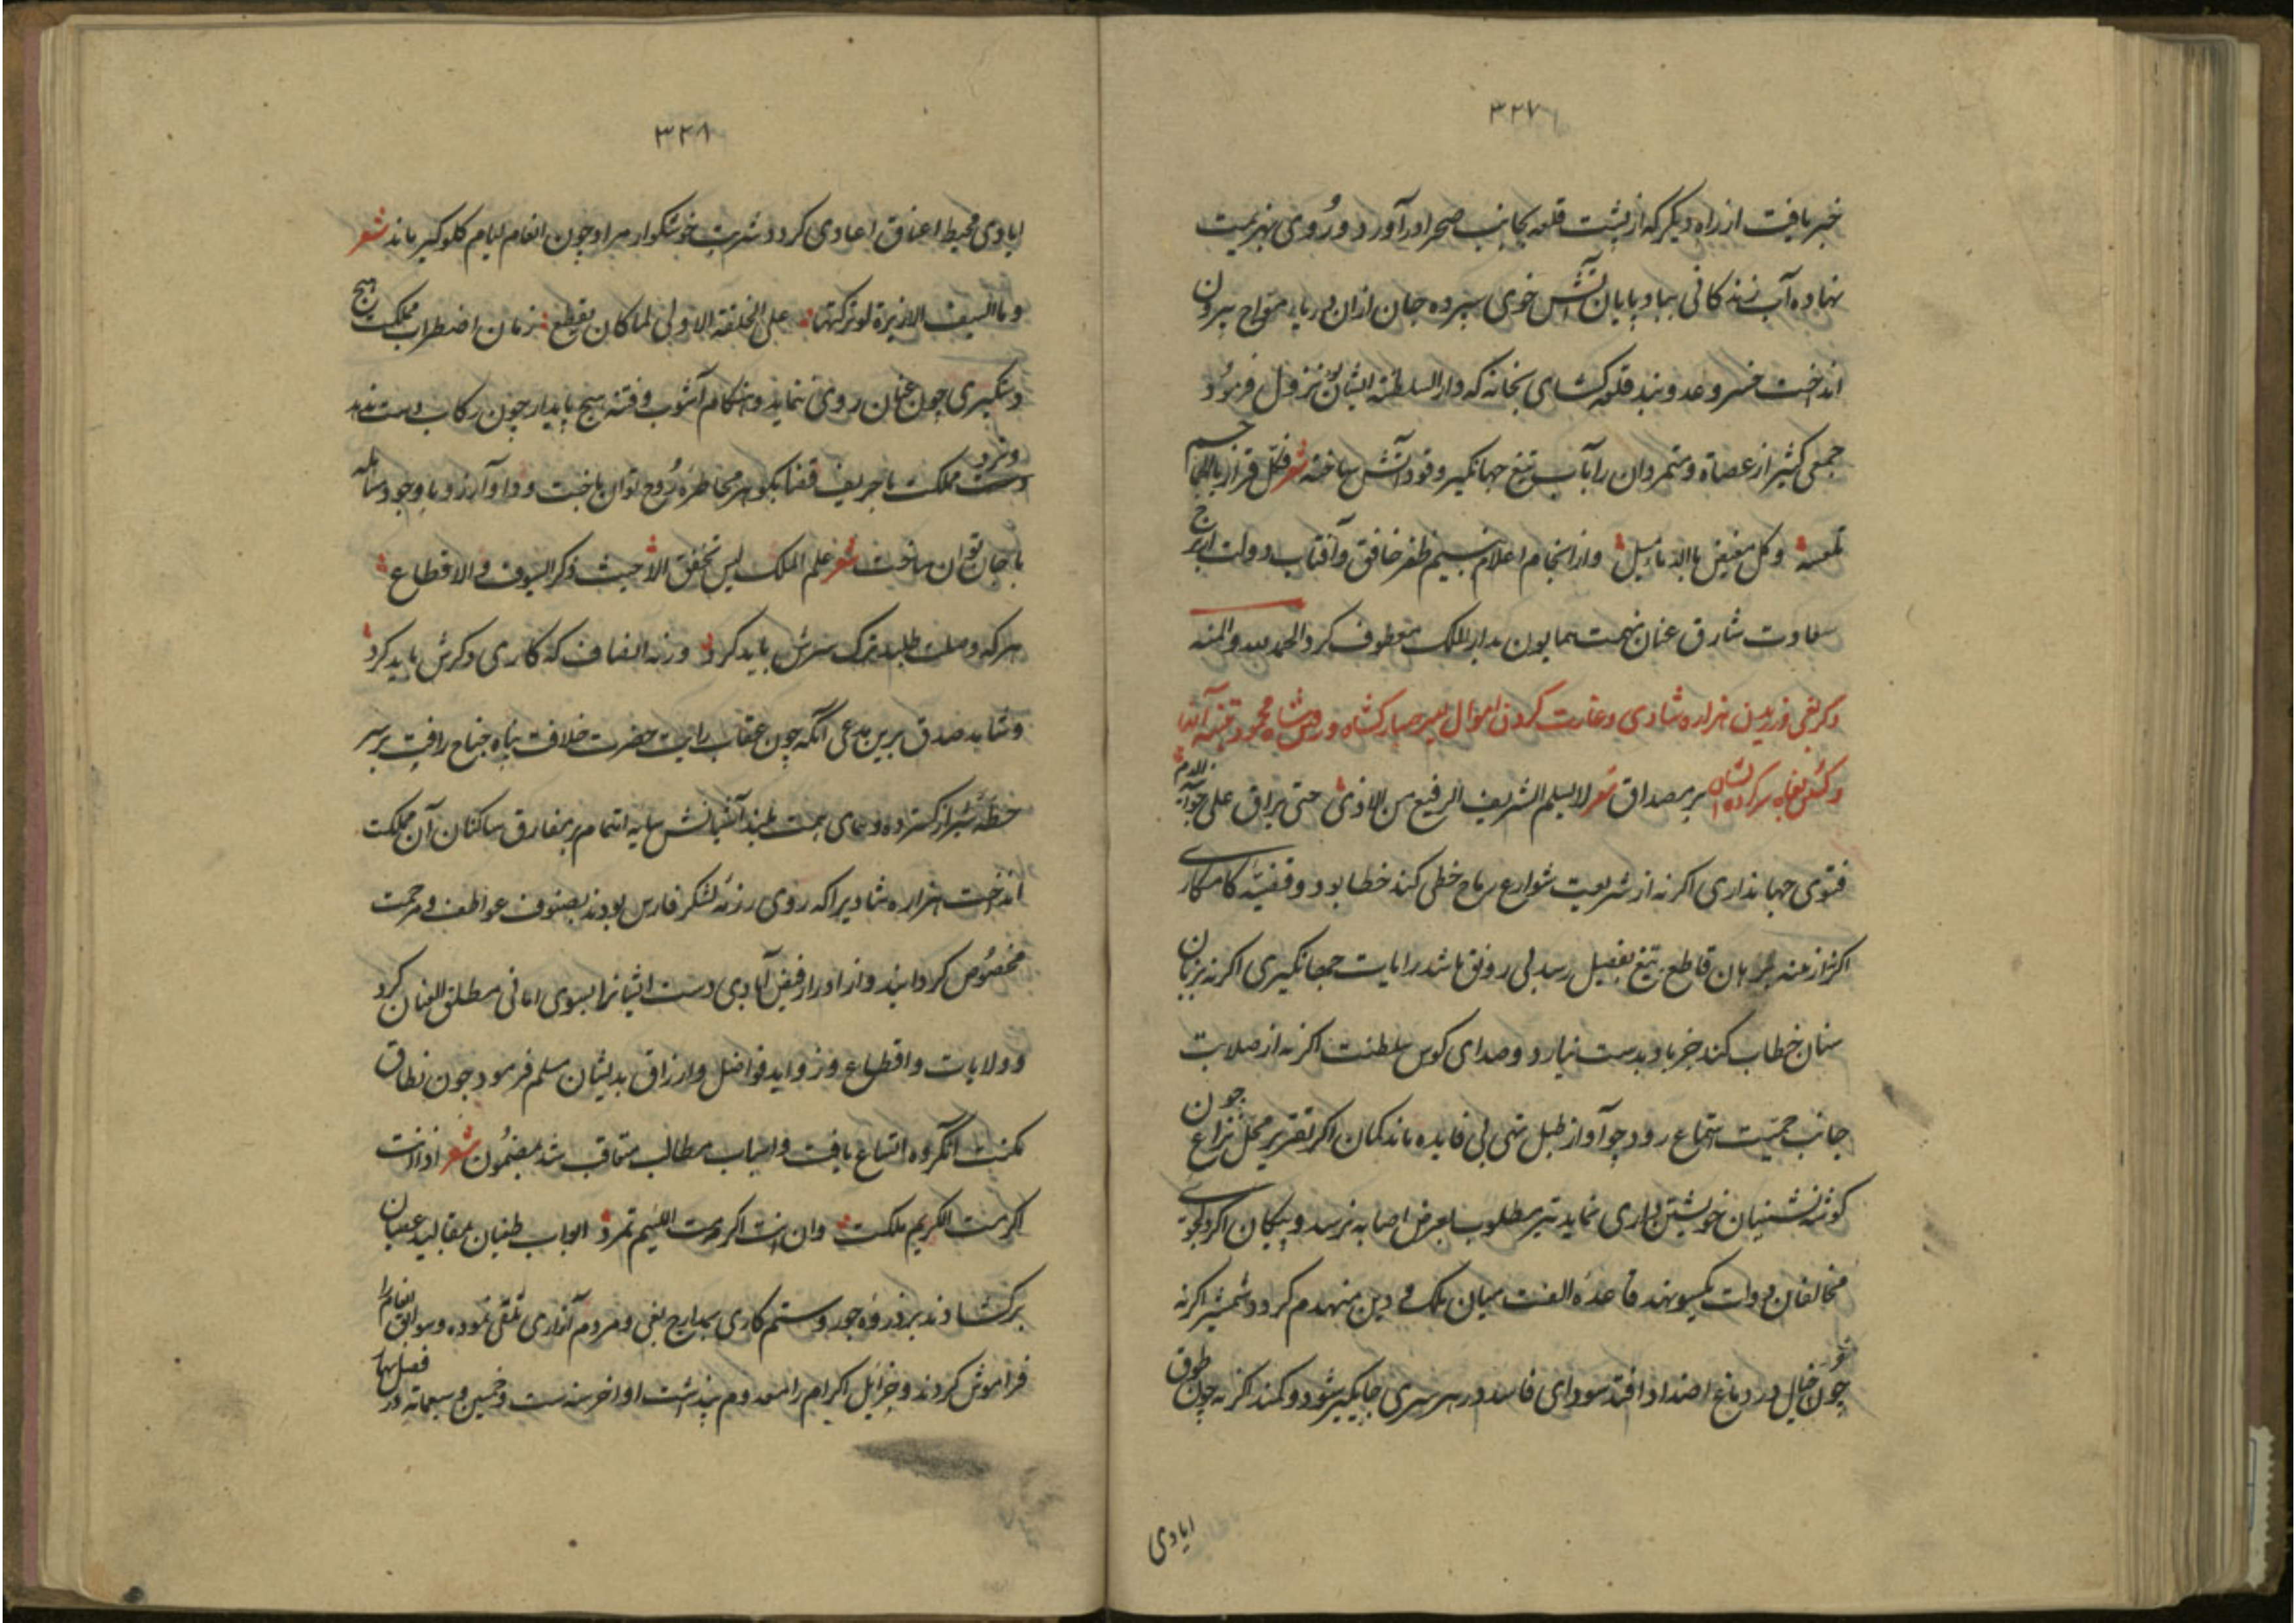 ۳۲۷
خبر یافت از راه دیگر که از پشت قلعه بجانب صحرا در آورد و روی بهزیمت
نهاده آب زندگانی بباد پایان آتش خوی سپرده جان ازان دریاء مواج بیرون
انداخت خسرو عدوبند قلعه کشای بخانه که دار السلطنه ایشان بود نزول فرمود
جمعی کثیر از عصاة و متمردان را بآب تیغ جهانگیر وقود آتش ساخته شعر فکل قرار بالجماجم
تلعسه وکل مغیض بالدماء یسیل و از انجام اعلام بنسیم ظفر خافق و آفتاب دولت از برج
سعادت شارق عنان نهمت همایون بدار الملک معطوف کرد الحمد لله والمنه
ذکر یغی ورزیدن هزاره شادی و غارت کردن اموال امیر مبارکشاه و
بر مصداق شعر لا یسلم الشرف الرفیع من الاذی حتی یراق علی جوانبه الدم
فتوی جهانداری اکر نه از شریعت شوارع رماح خطی کند خطا بود و قضیه کامکاری
اکر نه از برهان قاطع تیغ بفیصل رسد بی رونق باشد رایات جهانگیری اکر نه بزبان
سنان خطاب کند جز باد بدست نیارد و صدای کوس سلطنت اکر نه از صلابت
جانب حمیت استماع رود چو آواز طبل تهی بی فایده ماند کمان اکر تقریر محل نزاع چون
کوشه نشینان خویشتن داری نماید تیر مطلوب بغرض اصابه نرسد و پیکان اکر دلجوئی
مخالفان دولت بیکسو نهد قاعده الفت میان ملک و دین منهدم کردد شمشیر اکر نه
چون خیال در دماغ اضداد افتد سودای فاسد در هر سری جایگیر شود و کمند اکر نه چون طوق
ایادی
۳۲۸
ایادی محیط اعناق اعادی کردد شربت خوشکوار مراد چون انعام لیام کلوکیر ماند شعر
وما السیف الا زبرة لو ترکتها علی الخلقة الاولی لما کان یقطع زمان اضطراب مملکت هیچ
دستکیری چون عنان روی ننماید و هنکام آشوب و فتنه هیچ پایدار چون رکاب دست ندهد
ونرد مملکت با حریف قضا بکوهر مخاطره روح توان باخت و دا و آرزو با وجود مسامله
با جان توان ساخت شعر علم الملک لیس تخفق الا حیث ذکر السیوف و الاقطاع
هر که وصلت طلبد ترک سرش باید کرد ورنه انصاف که کاری دکرش باید کرد
و شاهد صدق برین مدعی آنکه چون عقاب رایت حضرت خلافت پناه جناح رافت بر سر
خطه شیراز کسترده و همای همت بلند آشیانش سایه اهتمام بر مفارق ساکنان آن مملکت
انداخت هزاره شادیرا که روی رزمه لشکر فارس بودند بصنوف عواطف و مرحمت
مخصوص کردانید و از ادرار فیض ایادی دست ایشانرا بسوی امانی مطلق العنان کرد
و ولایات و اقطاع و زواید فواضل و ارزاق بدیشان مسلم فرمود چون نطاق
مکنت آنکروه اتساع یافت و اسباب مطالب متعاقب شد بمضمون شعر اذا انت
اکرمت الکریم ملکت وان انت اکرمت اللئیم تمردا ابواب طغیان بمقالید عصیان
برکشادند بر ذروه جور و ستم کاری بمدارج بغی و مردم آزاری ترقی نموده و سوابق انعام را
فراموش کردند و جزایل اکرام را معدوم پنداشت اواخر سنه ست و خمسین و سبعمایه در فصل بهار